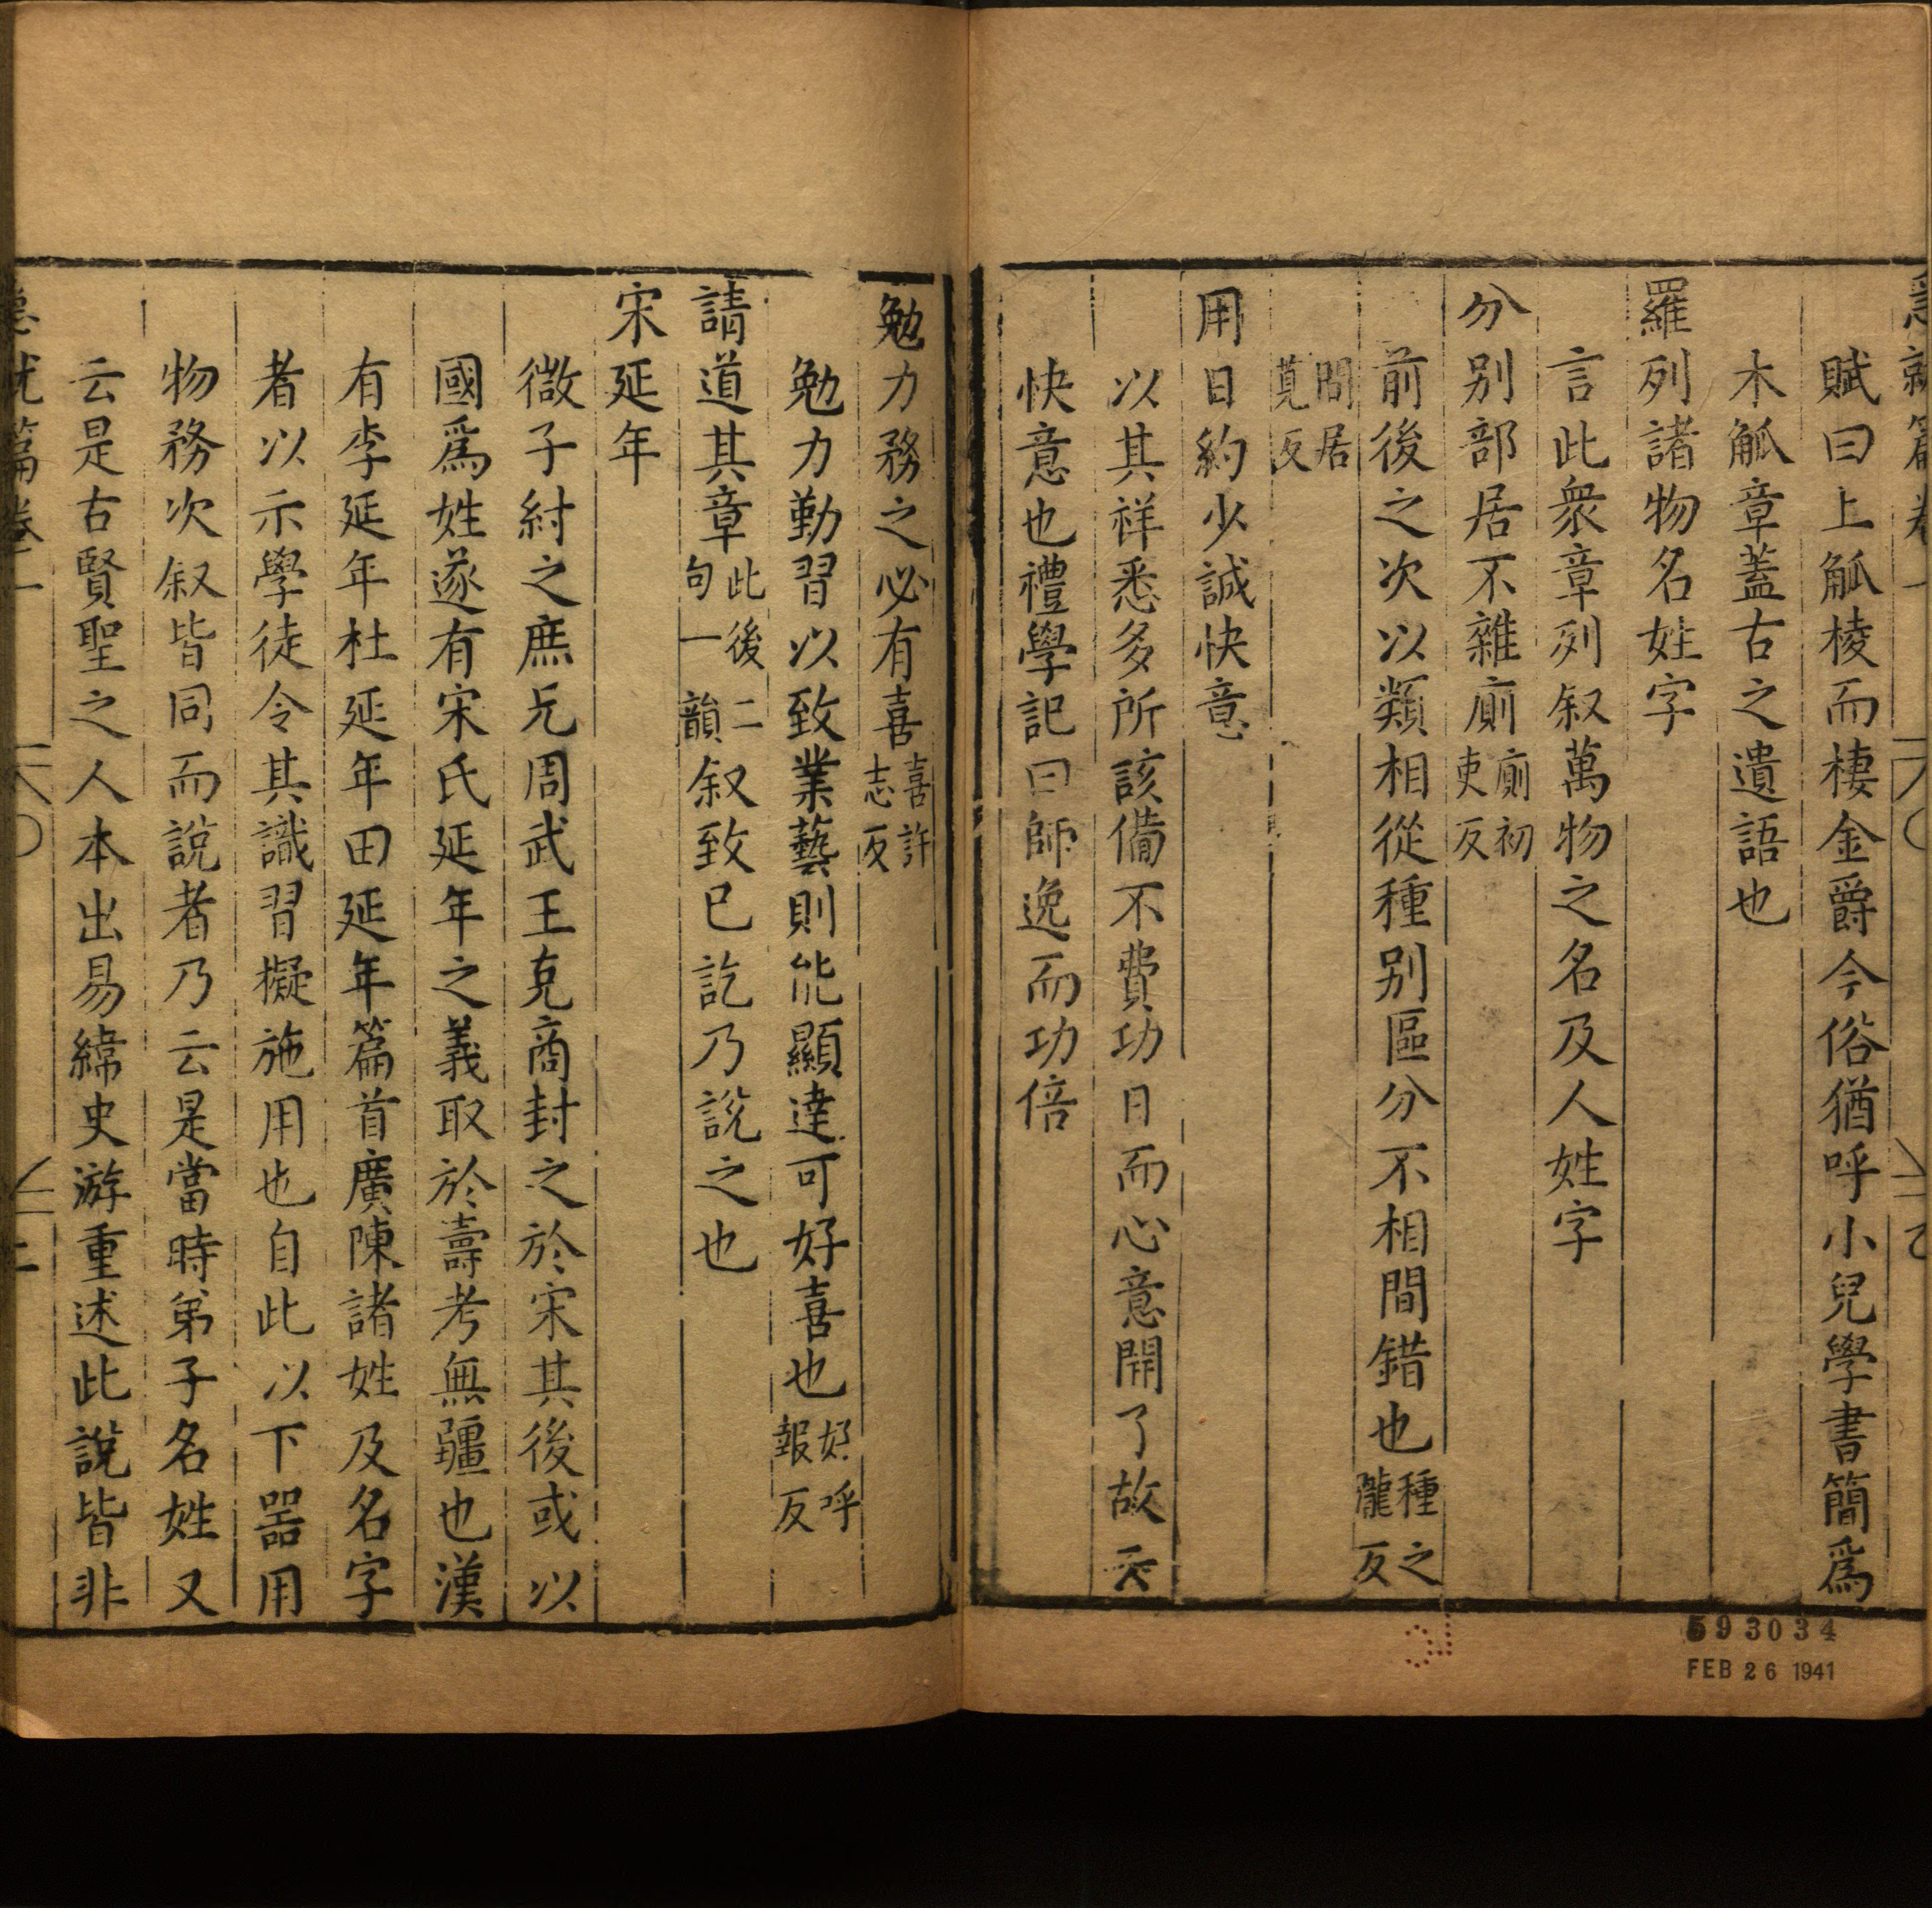 急就篇卷一
賦曰上觚棱而棲金爵今俗猶呼小兒學書簡爲
木觚章蓋古之遺語也
羅列諸物名姓字
言此衆章列叙萬物之名及人姓字
分别部居不雜廁廁初吏反
前後之次以類相從種别區分不相間錯也種之瀧反
間居莧反
用日約少誠快意
以其祥悉多所該備不費功日而心意開了故云
快意也禮學記曰師逸而功倍
勉力務之必有喜喜許志反
勉力勤習以致業藝則能顯達可好喜也好呼報反
請道其章此後二句一韻叙致已訖乃說之也
宋延年
微子紂之庶兄周武王克商封之於宋其後或以
國爲姓遂有宋氏延年之義取於壽考無疆也漢
有李延年杜延年田延年篇首廣陳諸姓及名字
者以示學徒令其識習擬施用也自此以下器用
物務次叙皆同而說者乃云是當時弟子名姓又
云是古賢聖之人本出易緯史游重述此說皆非
急就篇卷一
593034
FEB 26 1941